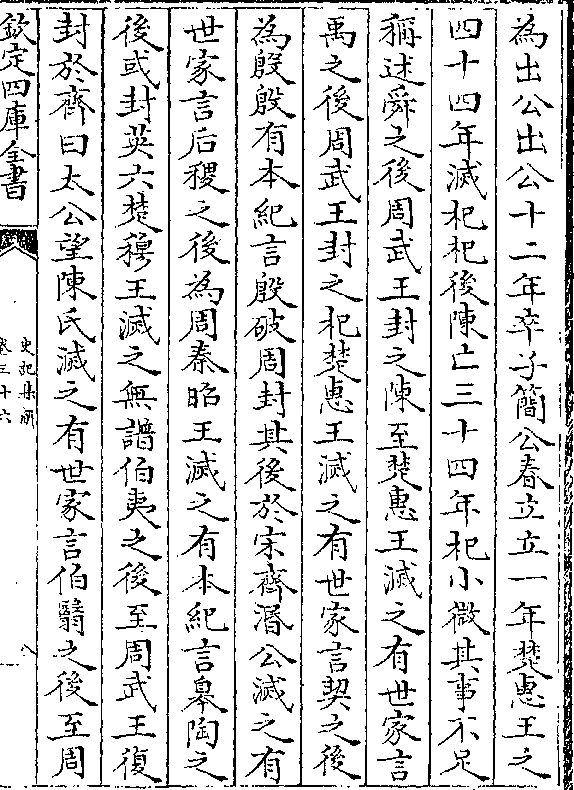 為出公出公十二年卒子簡公春立立一年楚惠王之
四十四年滅杞杞後陳亡三十四年杞小微其事不足
稱述舜之後周武王封之陳至楚惠王滅之有世家言
禹之後周武王封之杞楚惠王滅之有世家言契之後
為殷殷有本紀言殷破周封其後於宋齊湣公滅之有
世家言后稷之後為周秦昭王滅之有本紀言皋陶之
後或封英六楚穆王滅之無譜伯夷之後至周武王復
封於齊曰太公望陳氏滅之有世家言伯翳之後至周
欽定四庫全書
史記集解
卷三十六
八